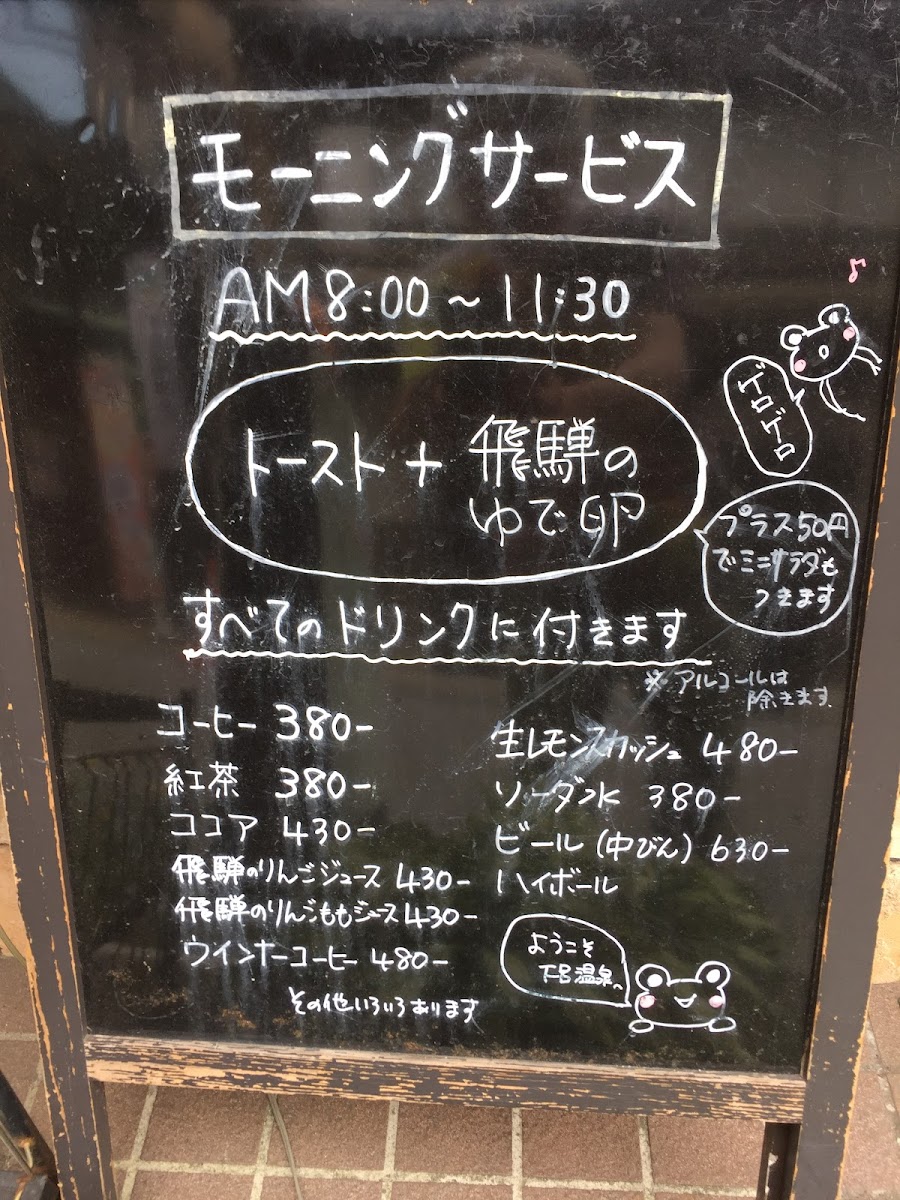 モーニングサービス
AM8:00～11:30
ゲロゲロ
トースト+飛騨の
ゆで卵
プラス50円
でミニサラダも
つきます
すべてのドリンクに付きます
※アルコールは
除きます
コーヒー 380-
紅茶 380-
ココア 430-
飛騨のりんごジュース 430-
飛騨のりんごももジュース 430-
ウインナーコーヒー 480-
その他いろいろあります
生レモンスカッシュ 480-
ソーダ水 380-
ビール(中びん) 630-
ハイボール
ようこそ
下呂温泉へ